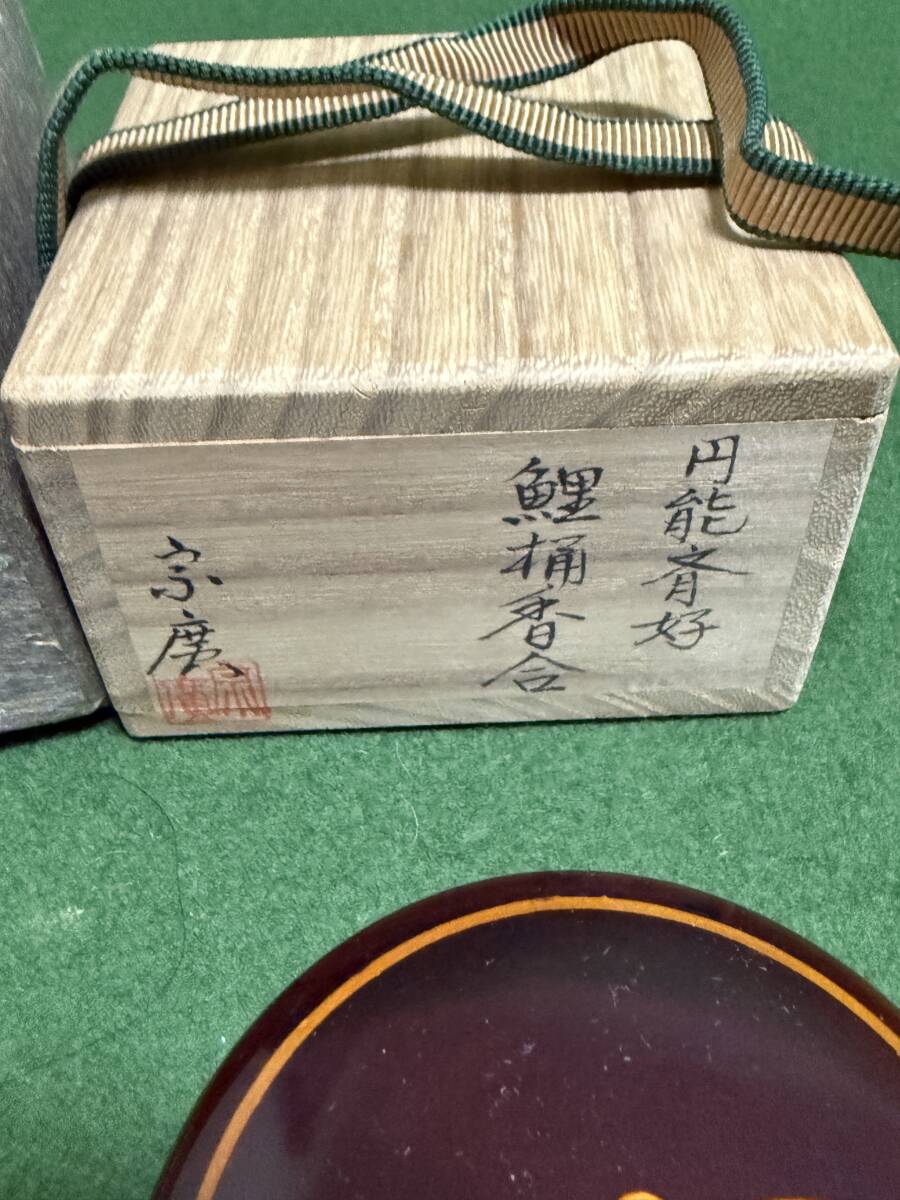 円能斎好
鯉桶香合
宗廣